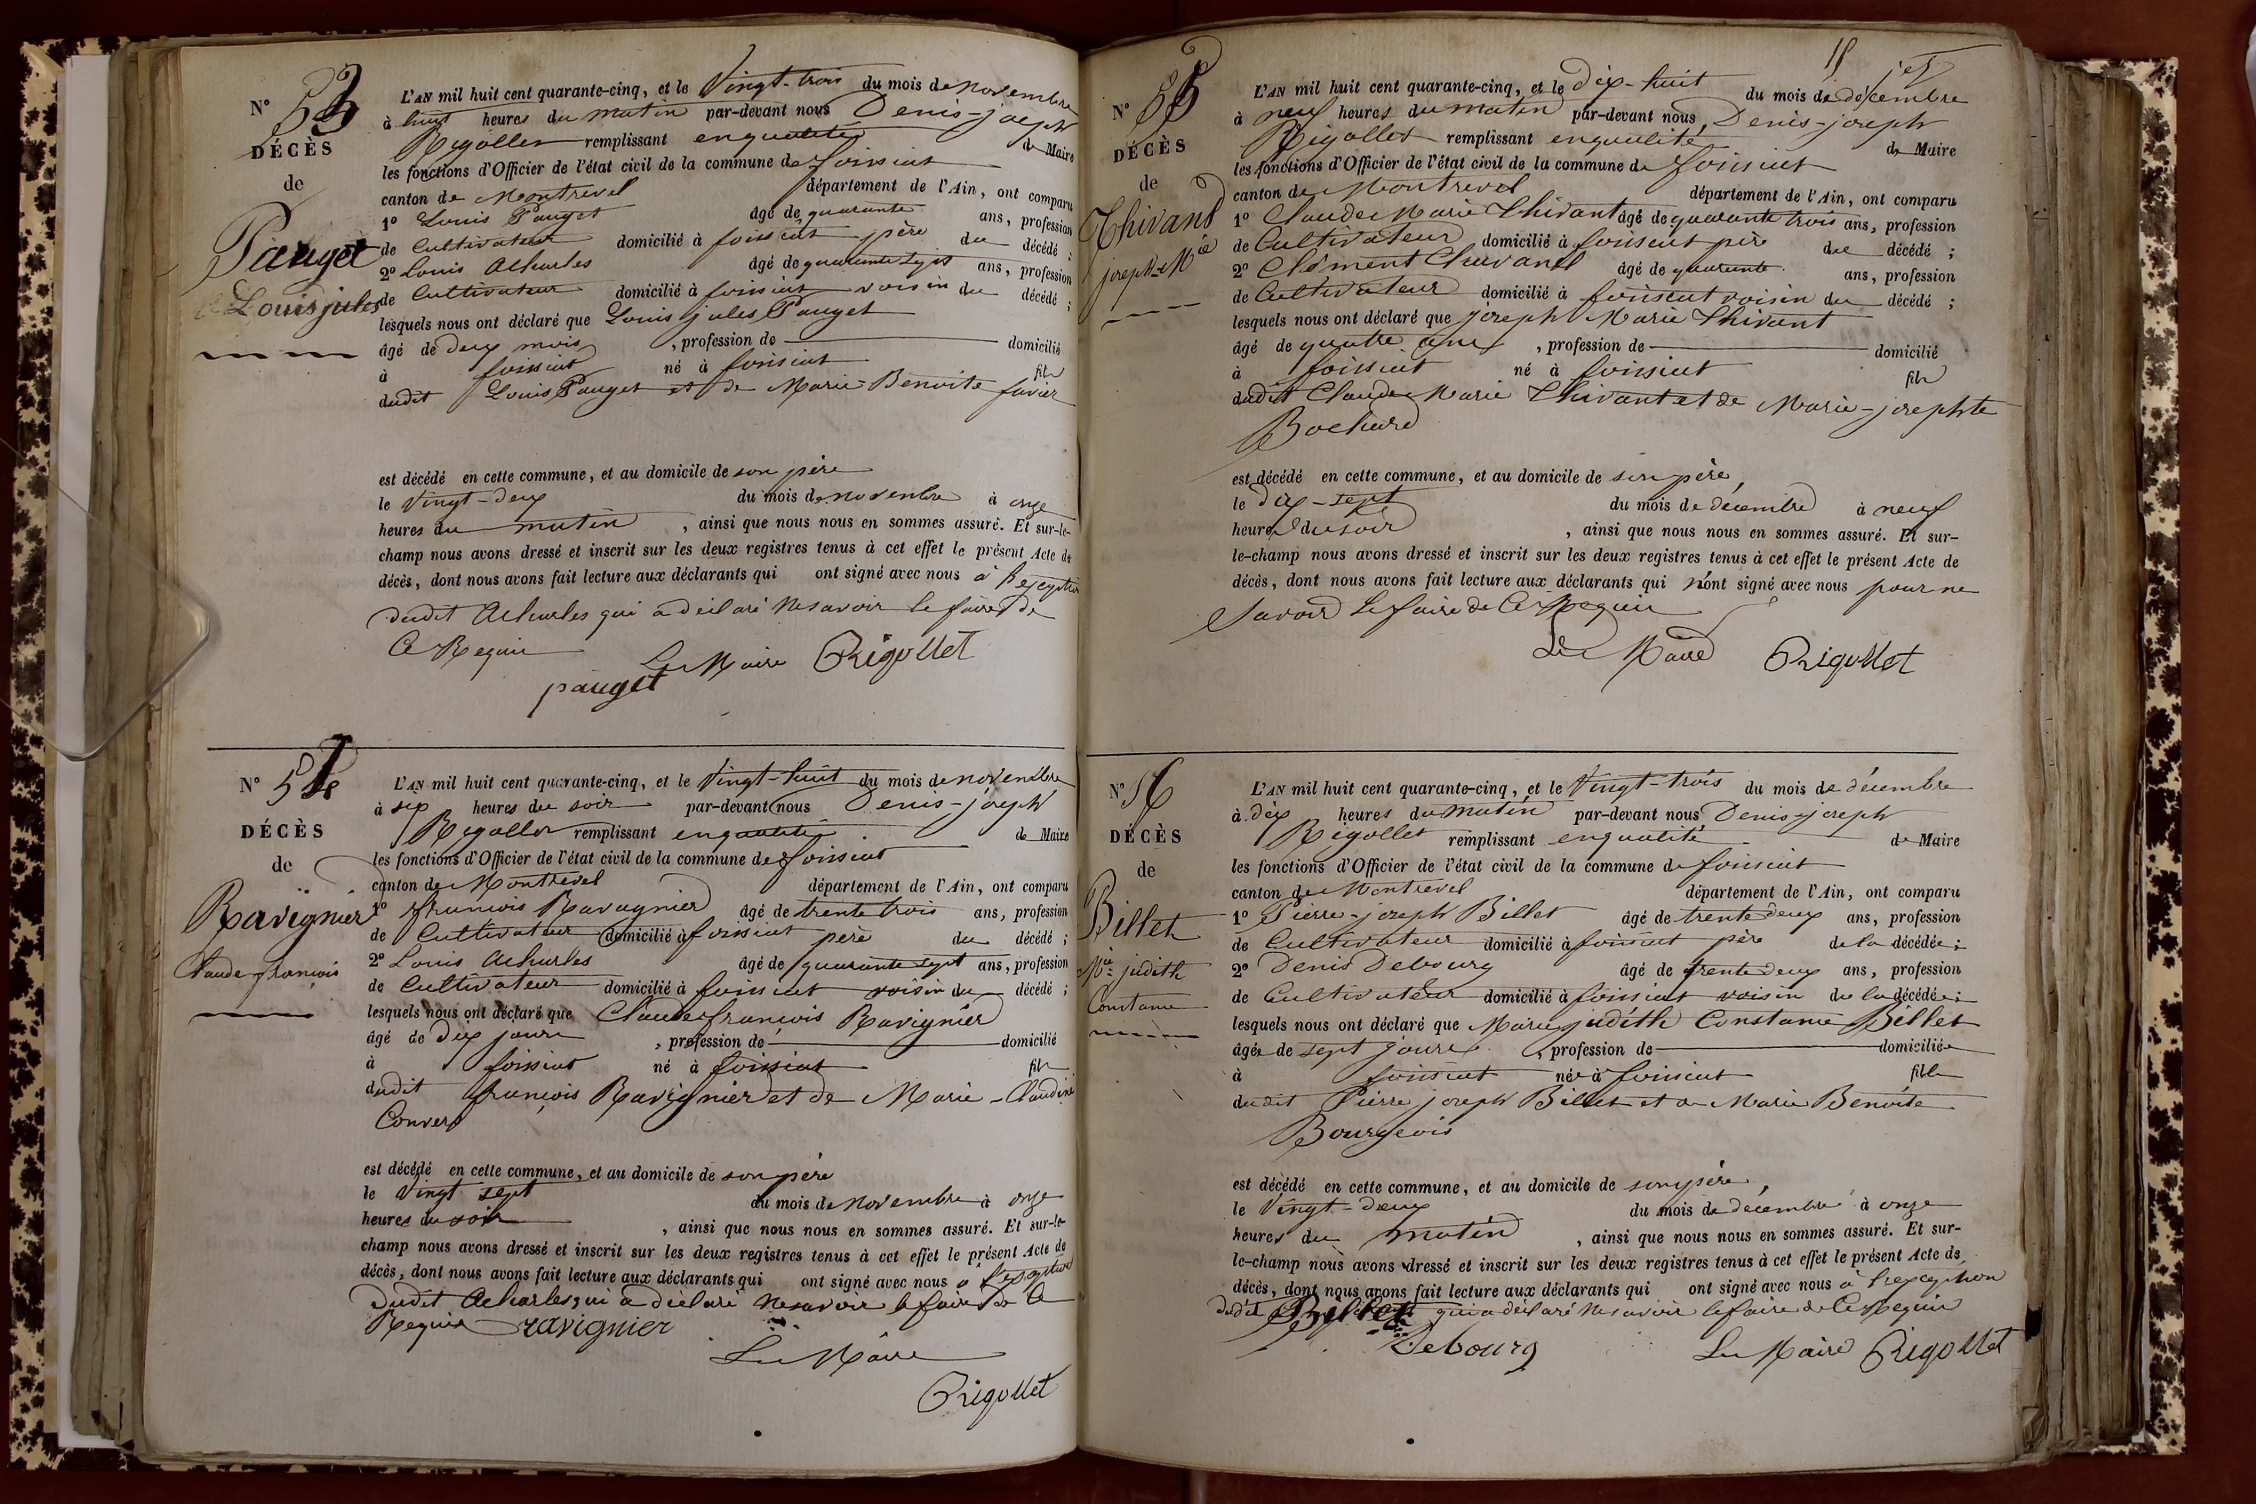 N° 53
DÉCÈS
de
Pauget
Louis jules
L'AN mil huit cent quarante-cinq, et le Vingt-trois du mois de novembre
à huit heures du matin par-devant nous Denis-joseph
Rigollet remplissant enqualité de Maire
les fonctions d'Officier de l'état civil de la commune de foissiat
canton de Montrevel département de l'Ain, ont comparu
1° Louis Pauget âgé de quarante ans, profession
de Cultivateur domicilié à foissiat père du décédé ;
2° Louis Acharles âgé de quarante sept ans, profession
de Cultivateur domicilié à foissiat voisin du décédé ;
lesquels nous ont déclaré que Louis jules Pauget
âgé de deux mois, profession de domicilié
à foissiat né à foissiat fils
dudit Louis Pauget et de Marie-Benoite favier
est décédé en cette commune, et au domicile de son père
le Vingt-deux du mois de novembre à onze
heures du matin, ainsi que nous nous en sommes assuré. Et sur-le-
champ nous avons dressé et inscrit sur les deux registres tenus à cet effet le présent Acte de
décès, dont nous avons fait lecture aux déclarants qui ont signé avec nous à l'exception
dudit Acharles qui a déclaré ne savoir le faire de
Ce Requis
Le Maire Rigollet
pauget
N° 54
DÉCÈS
de
Ravignier
Claude françois
L'AN mil huit cent quarante-cinq, et le Vingt-huit du mois de novembre
à six heures du soir par-devant nous Denis-joseph
Rigollet remplissant enqualité de Maire
les fonctions d'Officier de l'état civil de la commune de foissiat
canton de Montrevel département de l'Ain, ont comparu
1° françois Ravignier âgé de trente trois ans, profession
de Cultivateur domicilié à foissiat père du décédé ;
2° Louis Acharles âgé de quarante sept ans, profession
de Cultivateur domicilié à foissiat voisin du décédé ;
lesquels nous ont déclaré que Claude françois Ravignier
âgé de dix jours, profession de domicilié
à foissiat né à foissiat fils
dudit françois Ravignier et de Marie-Claudine
Convers
est décédé en cette commune, et au domicile de son père
le Vingt sept du mois de novembre à onze
heures du soir, ainsi que nous nous en sommes assuré. Et sur-le-
champ nous avons dressé et inscrit sur les deux registres tenus à cet effet le présent Acte de
décès, dont nous avons fait lecture aux déclarants qui ont signé avec nous à l'exception
dudit Acharles qui a déclaré ne savoir le faire de Ce
Requis ravignier
Le Maire
Rigollet
N° 55
DÉCÈS
de
Thivant
joseph Mie
L'AN mil huit cent quarante-cinq, et le dix-huit du mois de décembre
à neuf heures du matin par-devant nous Denis-joseph
Rigollet remplissant enqualité de Maire
les fonctions d'Officier de l'état civil de la commune de foissiat
canton de Montrevel département de l'Ain, ont comparu
1° Claude Marie Thivant âgé de quarante trois ans, profession
de Cultivateur domicilié à foissiat père du décédé ;
2° Clément Chavanel âgé de quarante ans, profession
de Cultivateur domicilié à foissiat voisin du décédé ;
lesquels nous ont déclaré que joseph Marie Thivant
âgé de quatre ans, profession de domicilié
à foissiat né à foissiat fils
dudit Claude Marie Thivant et de Marie-josephte
Bochard
est décédé en cette commune, et au domicile de son père,
le dix-sept du mois de décembre à neuf
heures du soir, ainsi que nous nous en sommes assuré. Et sur-
le-champ nous avons dressé et inscrit sur les deux registres tenus à cet effet le présent Acte de
décès, dont nous avons fait lecture aux déclarants qui n'ont signé avec nous pour ne
Savoir le faire de Ce Requis
Le Maire Rigollet
N° 56
DÉCÈS
de
Billet
Mie judith
Constance
L'AN mil huit cent quarante-cinq, et le Vingt-trois du mois de décembre
à dix heures du matin par-devant nous Denis-joseph
Rigollet remplissant enqualité de Maire
les fonctions d'Officier de l'état civil de la commune de foissiat
canton de Montrevel département de l'Ain, ont comparu
1° Pierre-joseph Billet âgé de trente deux ans, profession
de Cultivateur domicilié à foissiat père de la décédée ;
2° Denis Debourg âgé de trente deux ans, profession
de Cultivateur domicilié à foissiat voisin de la décédée ;
lesquels nous ont déclaré que Marie judith Constance Billet
âgée de sept jours, profession de domiciliée
à foissiat née à foissiat fille
dudit Pierre joseph Billet et de Marie Benoite
Bourgeois
est décédé en cette commune, et au domicile de son père,
le Vingt-deux du mois de décembre à onze
heures du matin, ainsi que nous nous en sommes assuré. Et sur-
le-champ nous avons dressé et inscrit sur les deux registres tenus à cet effet le présent Acte de
décès, dont nous avons fait lecture aux déclarants qui ont signé avec nous à l'exception
dudit Billet qui a déclaré ne savoir le faire de Ce Requis
Debourg Le Maire Rigollet